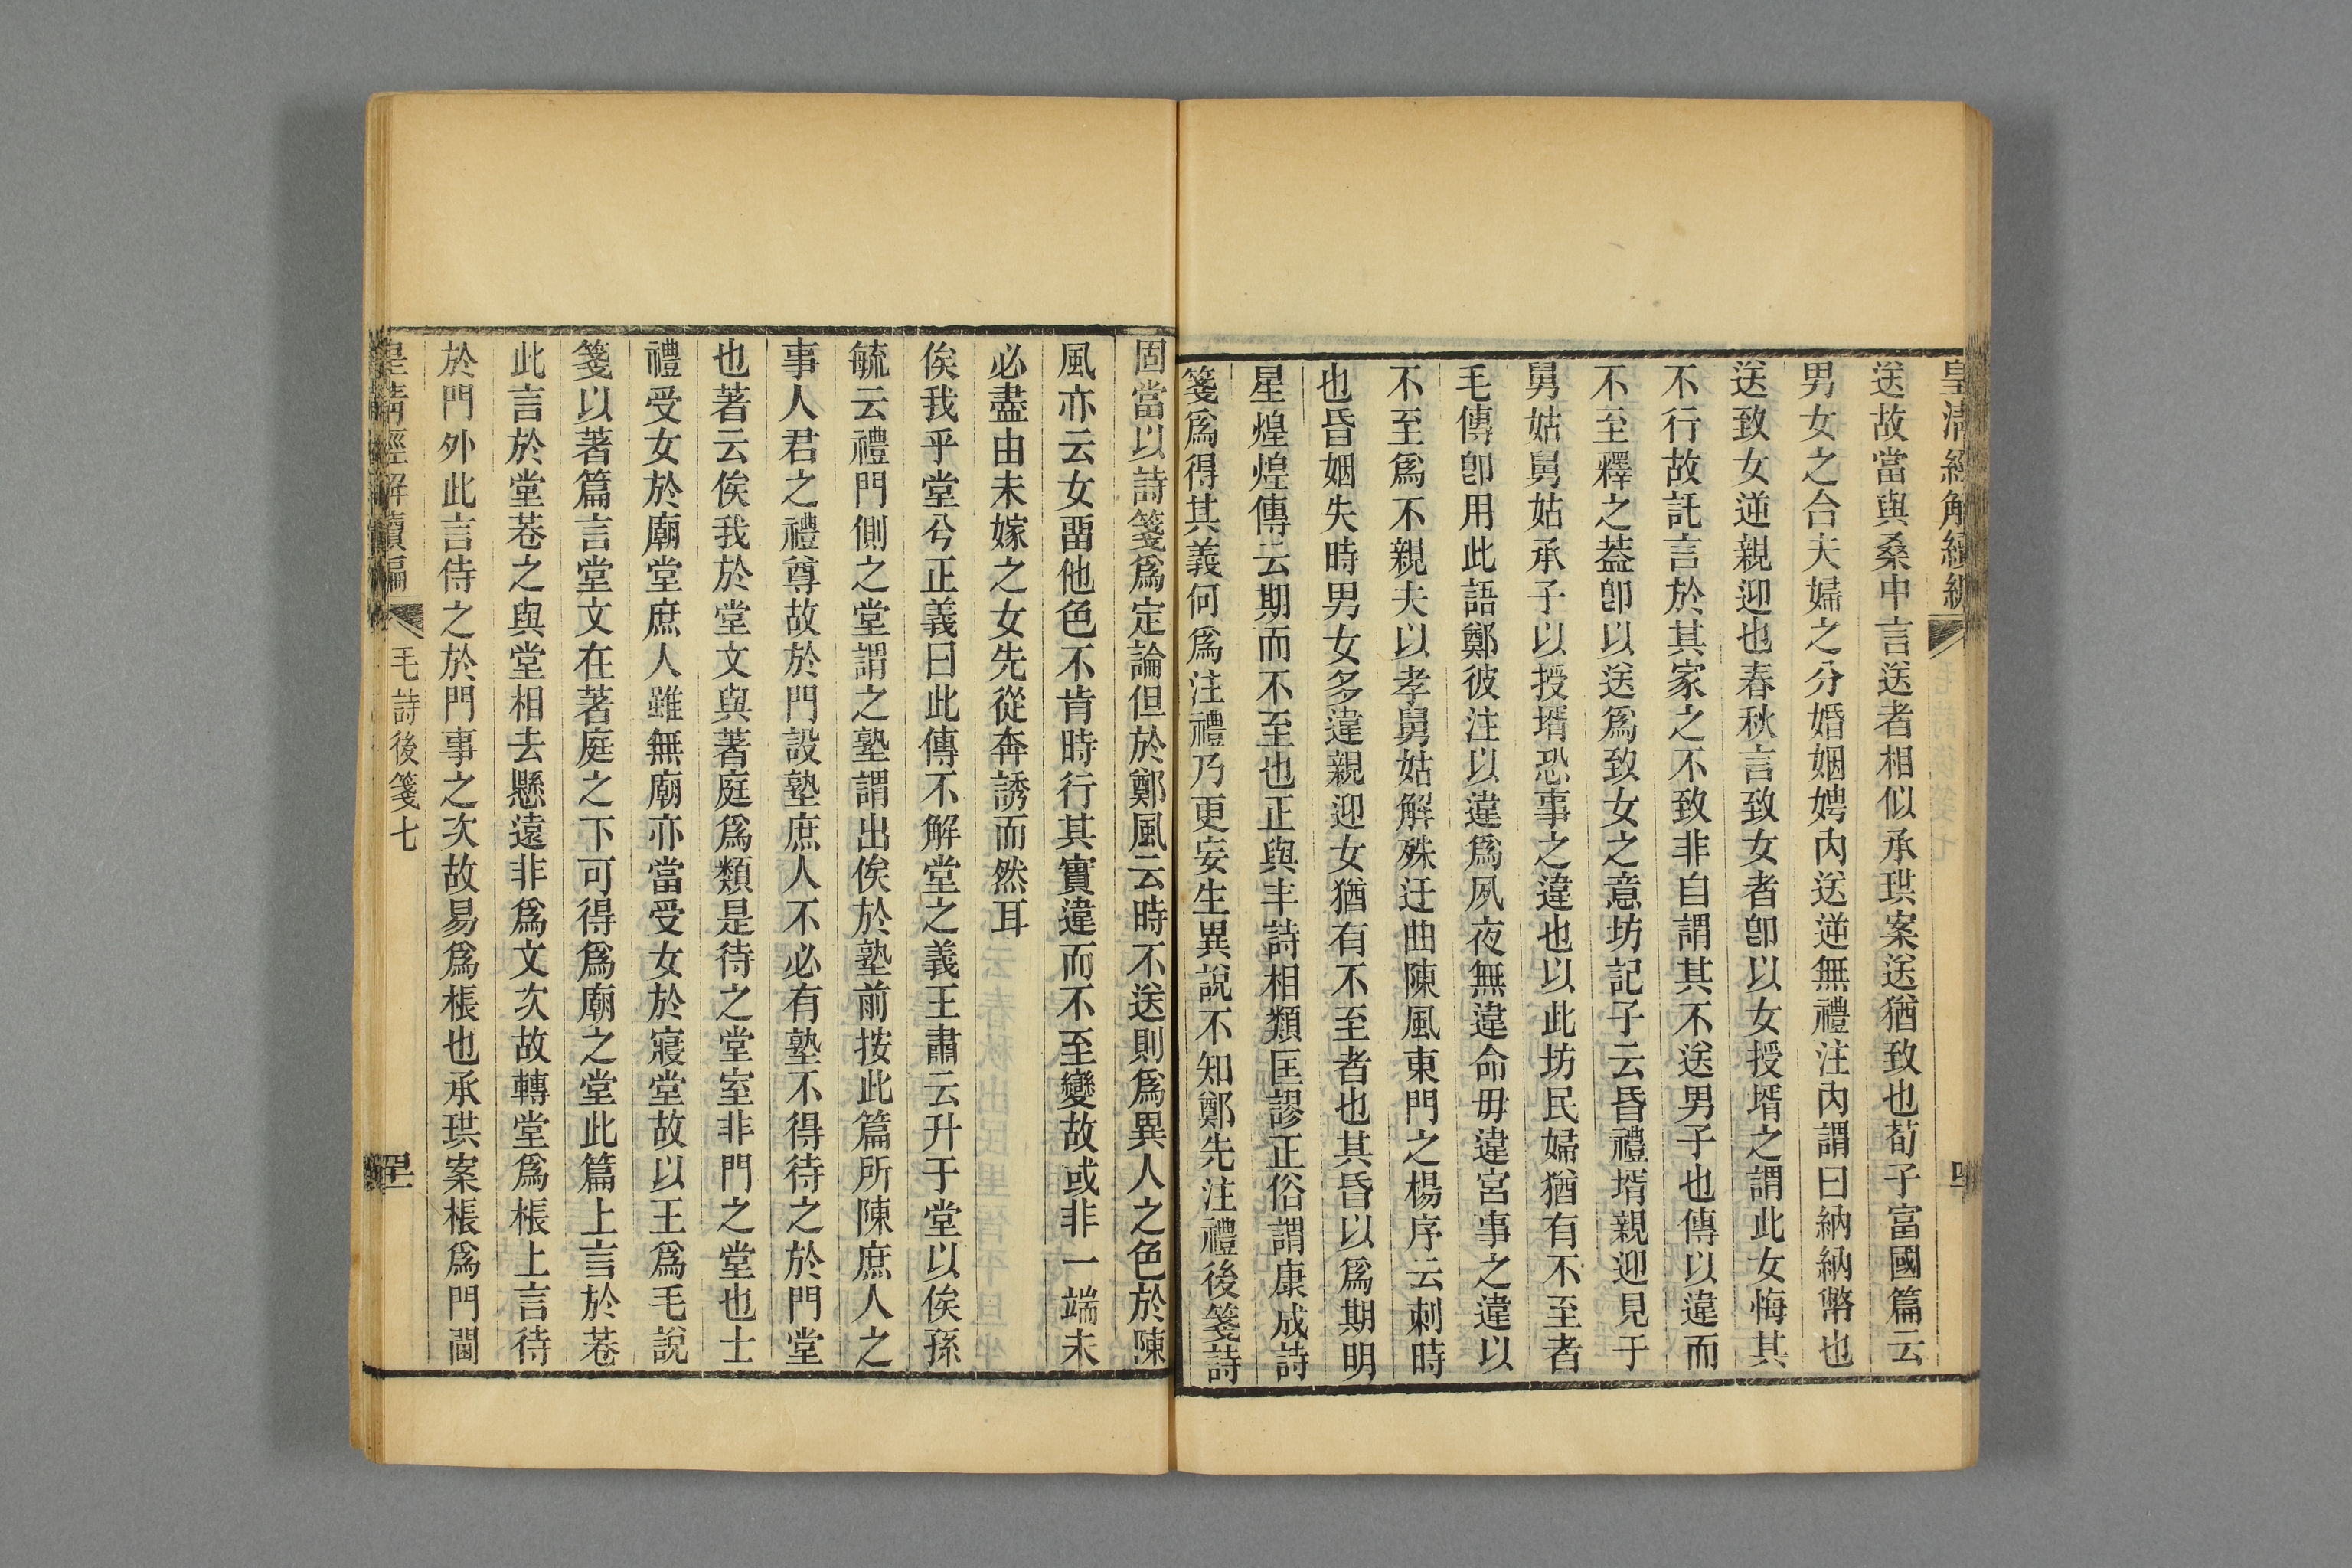 皇清經解續編
送故當與桑中言送者相似承珙案送猶致也荀子富國篇云
男女之合夫婦之分婚姻娉內送逆無禮注內謂曰納納幣也
送致女逆親迎也春秋言致女者卽以女授壻之謂此女悔其
不行故託言於其家之不致非自謂其不送男子也傳以違而
不至釋之葢卽以送爲致女之意坊記子云昏禮壻親迎見于
舅姑舅姑承子以授壻恐事之違也以此坊民婦猶有不至者
毛傳卽用此語鄭彼注以違爲夙夜無違命毋違宮事之違以
不至爲不親夫以孝舅姑解殊迂曲陳風東門之楊序云刺時
也昏姻失時男女多違親迎女猶有不至者也其昏以爲期明
星煌煌傳云期而不至也正與丰詩相類匡謬正俗謂康成詩
箋爲得其義何爲注禮乃更妄生異說不知鄭先注禮後箋詩
固當以詩箋爲定論但於鄭風云時不送則爲異人之色於陳
風亦云女畱他色不肯時行其實違而不至變故或非一端未
必盡由未嫁之女先從奔誘而然耳
俟我乎堂兮正義曰此傳不解堂之義王肅云升于堂以俟孫
毓云禮門側之堂謂之塾謂出俟於塾前按此篇所陳庶人之
事人君之禮尊故於門設塾庶人不必有塾不得待之於門堂
也著云俟我於堂文與著庭爲類是待之堂室非門之堂也士
禮受女於廟堂庶人雖無廟亦當受女於寢堂故以王爲毛說
箋以著篇言堂文在著庭之下可得爲廟之堂此篇上言於巷
此言於堂巷之與堂相去懸遠非爲文次故轉堂爲棖上言待
於門外此言侍之於門事之次故易爲棖也承珙案棖爲門梱
皇清經解續編 毛詩後箋七